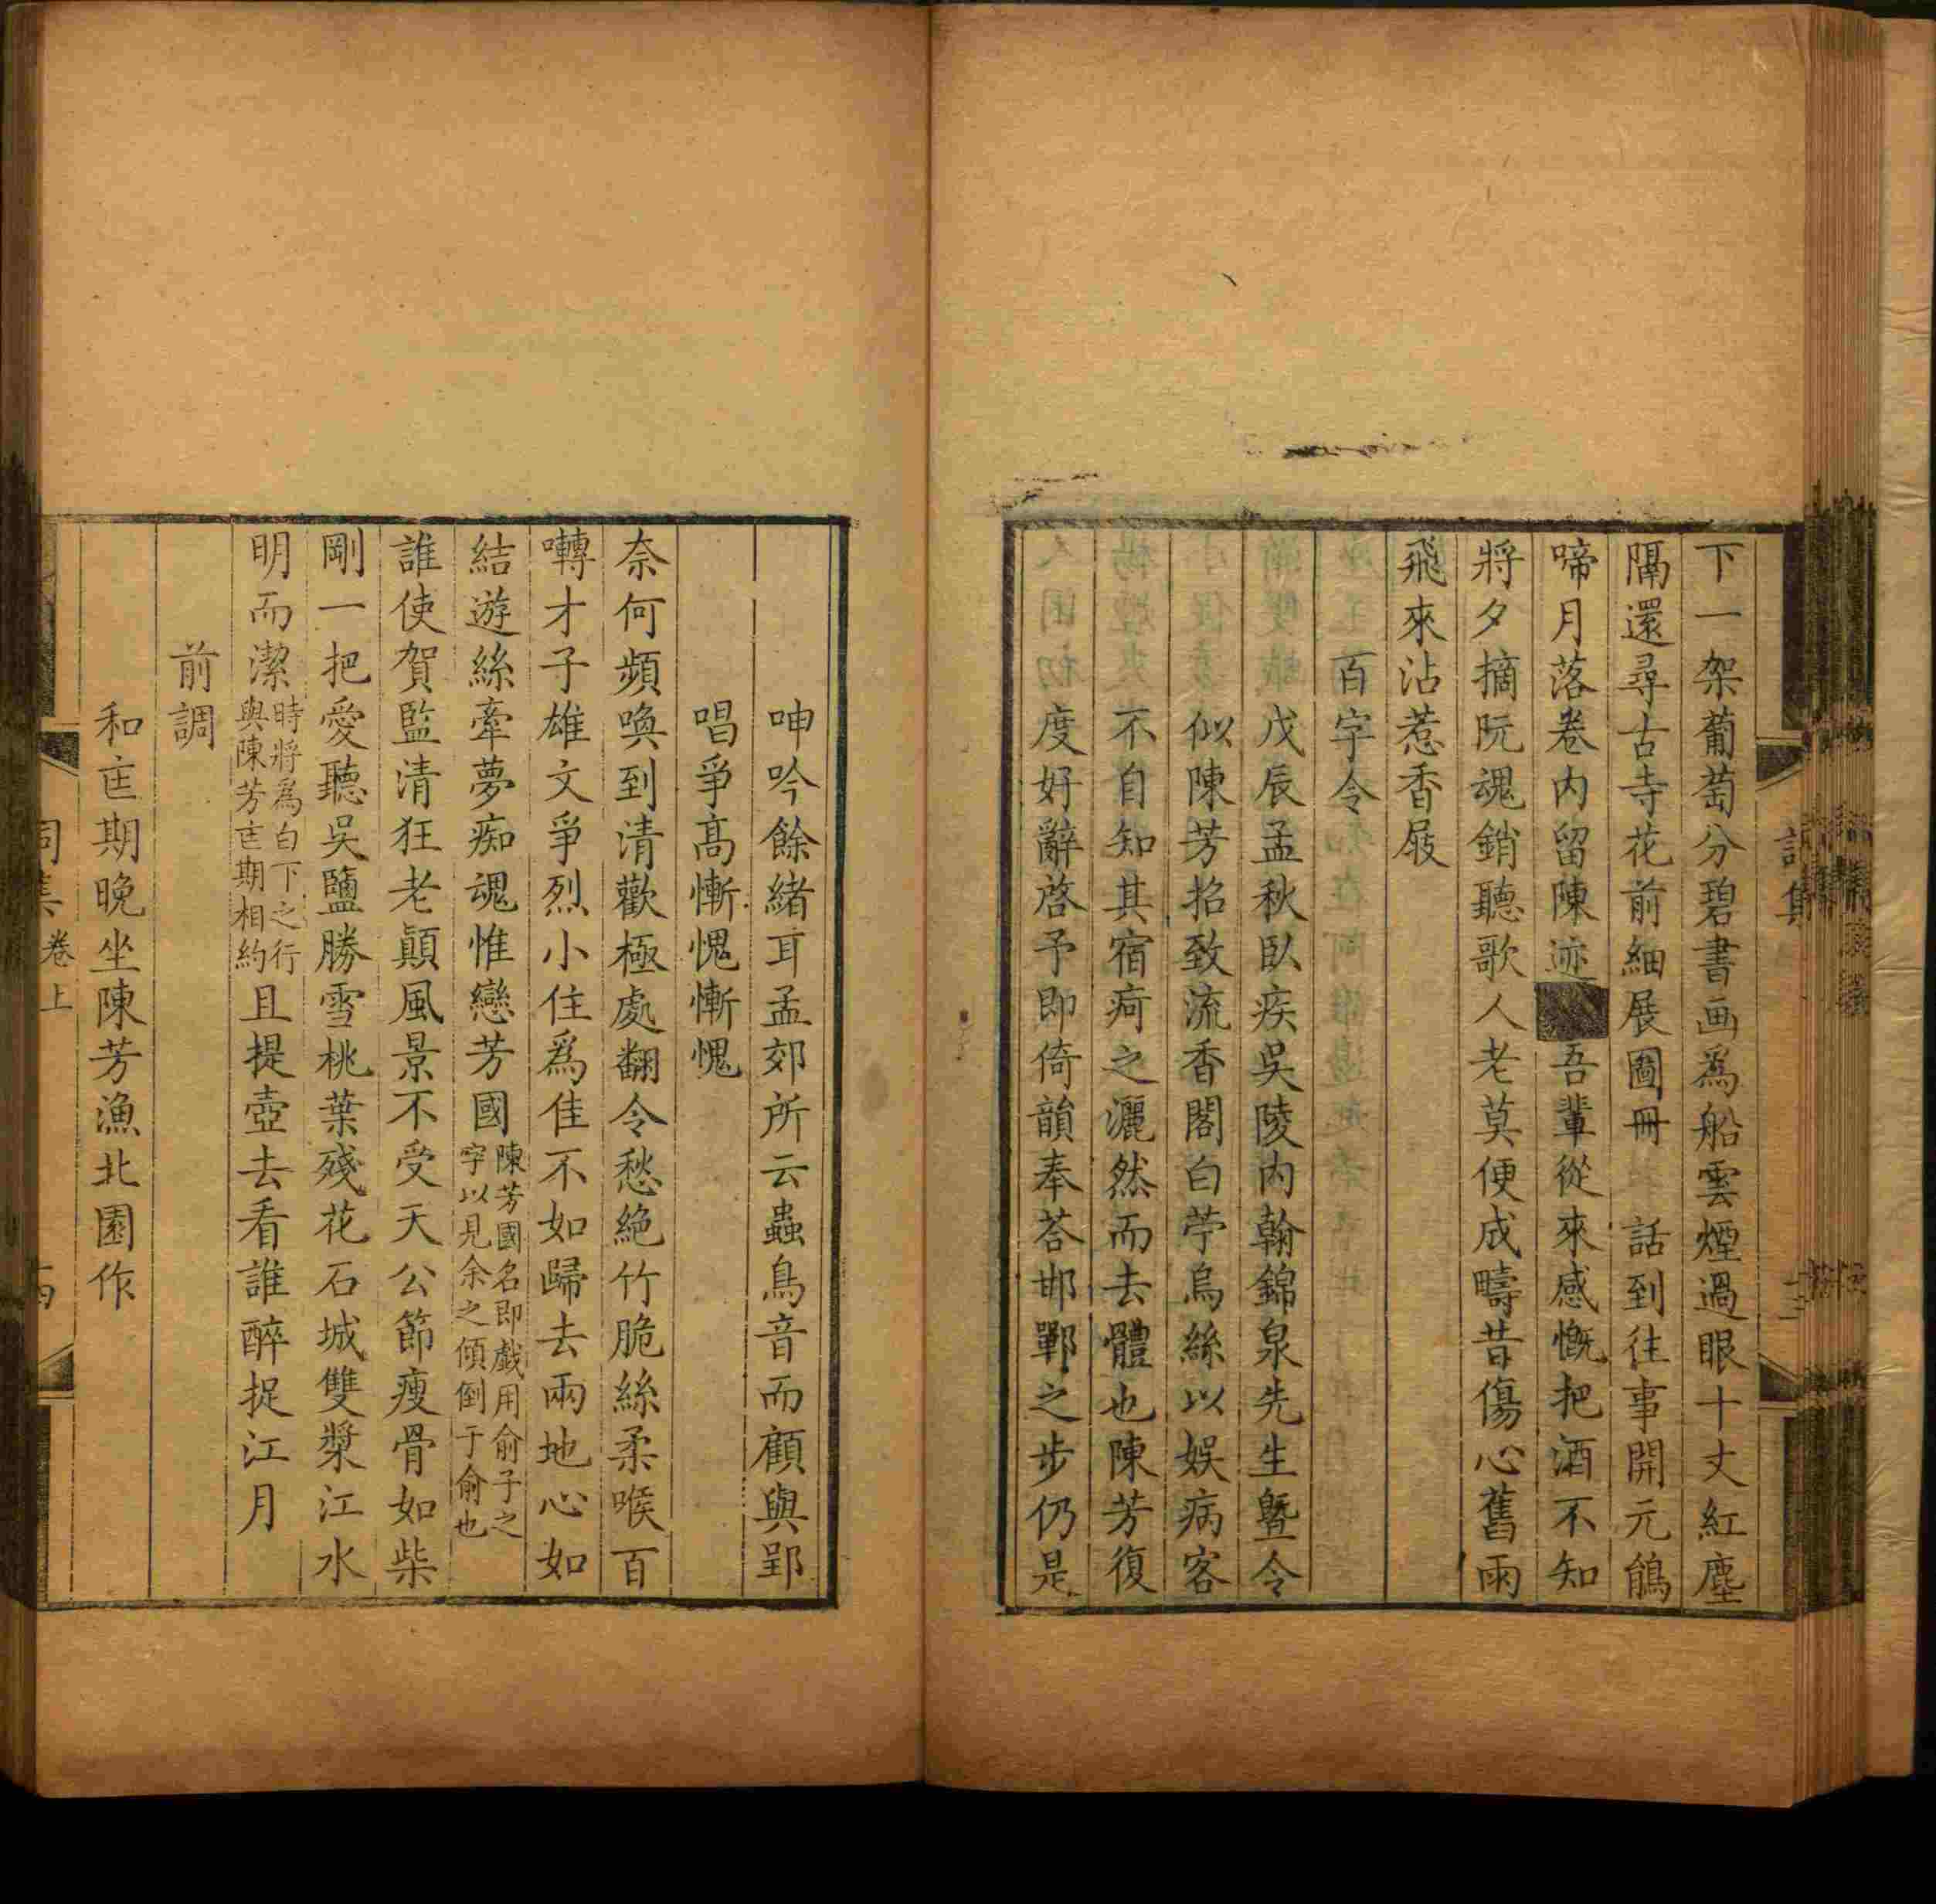 下一架葡萄分碧書画爲船雲煙過眼十丈紅塵
隔還尋古寺花前細展圖冊　話到往事開元鵃
啼月落卷内留陳迹　吾輩從來感慨把酒不知
將夕摘阮魂銷聽歌人老莫便成疇昔傷心舊雨
飛來沾惹香屐
百字令
戊辰孟秋臥疾吳陵内翰錦泉先生曁令
似陳芳招致流香閣白苧烏絲以娛病客
不自知其宿疴之灑然而去體也陳芳復
度好辭啓予即倚韻奉荅邯鄲之步仍是
呻吟餘緒耳孟郊所云蟲鳥音而顧與郢
唱爭髙慚愧慚愧
奈何頻喚到清歡極處翻令愁絕竹脆絲柔喉百
囀才子雄文爭烈小住爲佳不如歸去兩地心如
結遊絲牽夢痴魂惟戀芳國陳芳國名即戲用俞子之字以見余之傾倒于俞也
誰使賀監清狂老顚風景不受天公節瘦骨如柴
剛一把愛聽吳鹽勝雪桃葉殘花石城雙槳江水
明而潔時將爲白下之行與陳芳㡯期相約且提壺去看誰醉捉江月
前調
和㡯期晚坐陳芳漁北園作
卷上